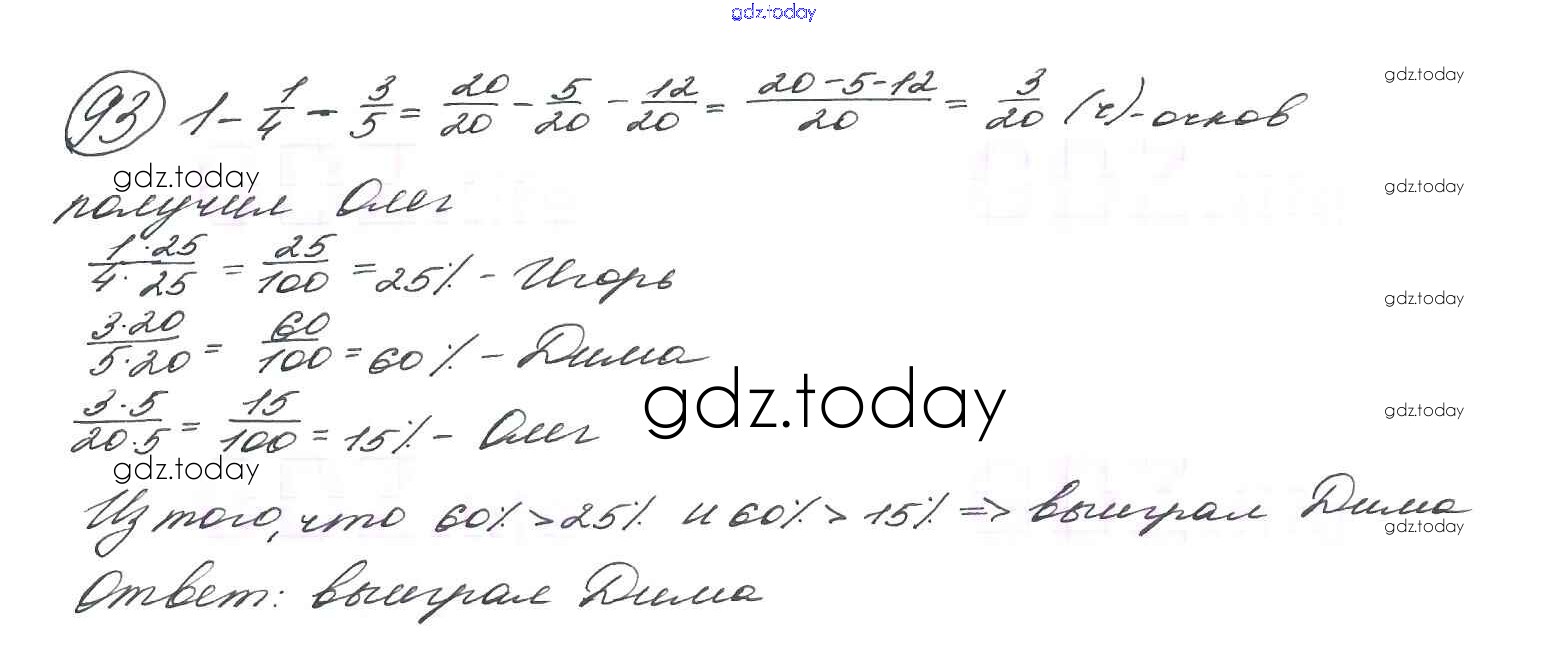 gdz.today
93 1 - 1/4 - 3/5 = 20/20 - 5/20 - 12/20 = (20-5-12)/20 = 3/20 (ч) - очков
gdz.today
gdz.today
gdz.today
получил Олег
(1·25)/(4·25) = 25/100 = 25% - Игорь
gdz.today
(3·20)/(5·20) = 60/100 = 60% - Дима
gdz.today
gdz.today
(3·5)/(20·5) = 15/100 = 15% - Олег
gdz.today
Из того, что 60% > 25% и 60% > 15% => выиграл Дима
gdz.today
Ответ: выиграл Дима